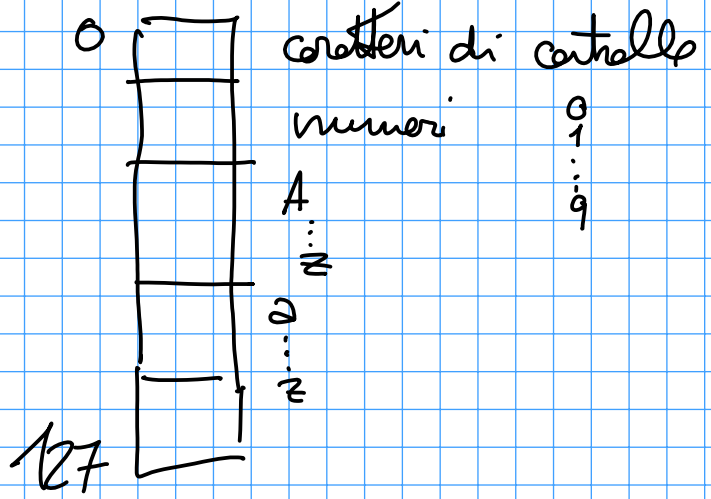 0 caratteri di controllo
numeri 0
1
⋮
9
A
⋮
Z
a
⋮
z
127